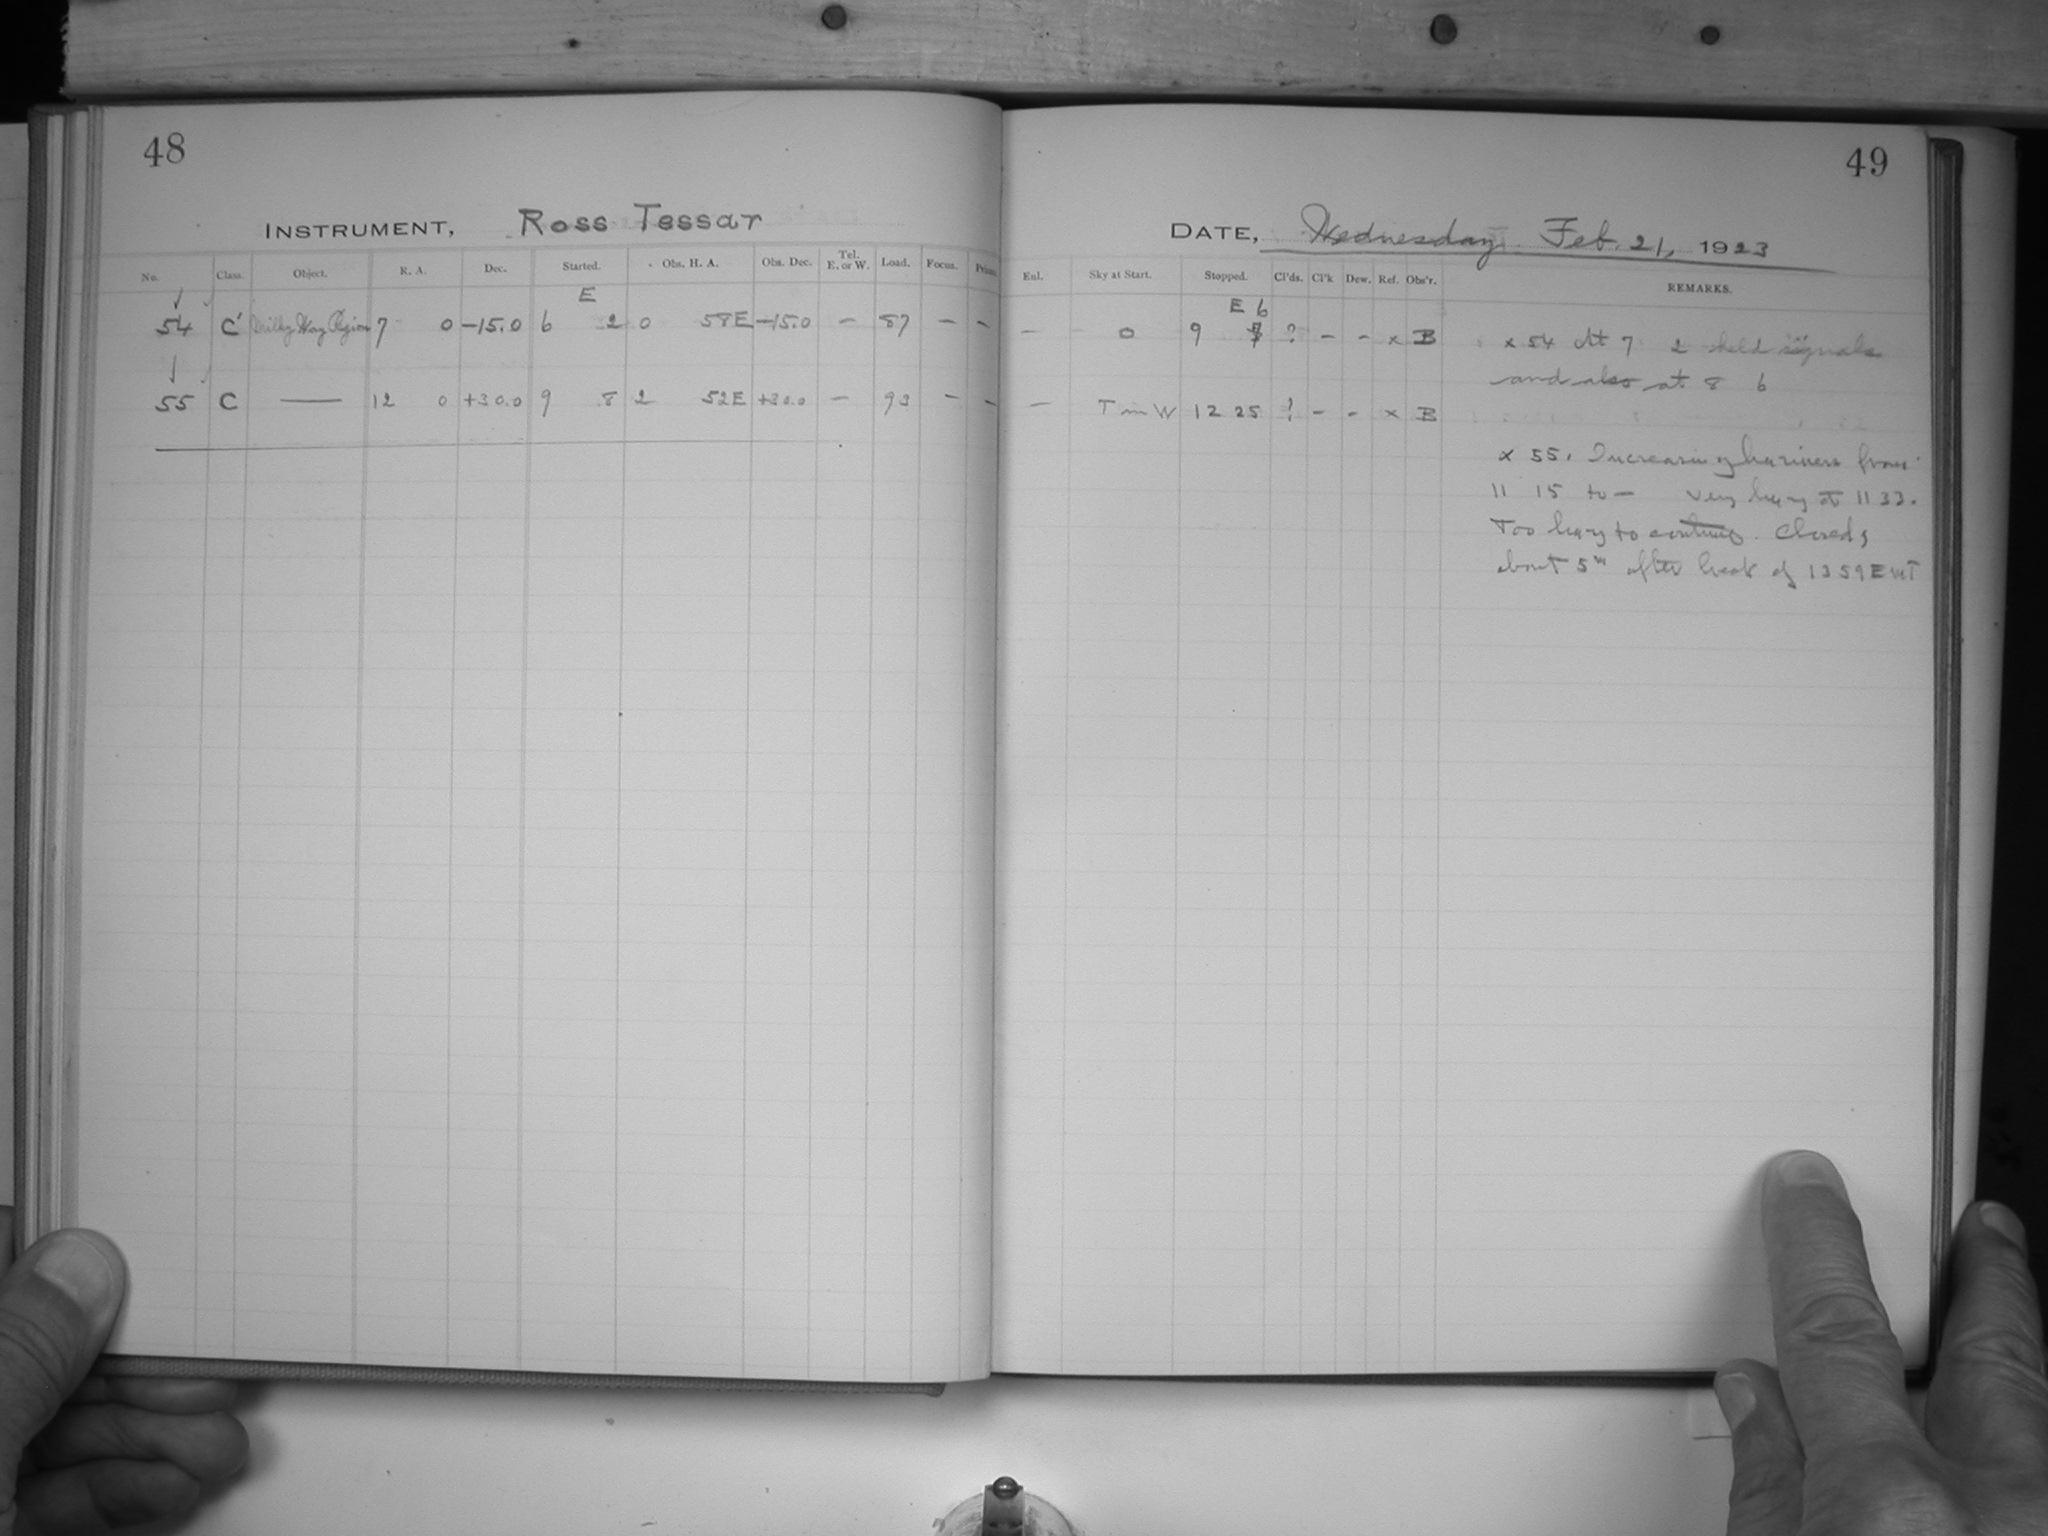 48
49
INSTRUMENT, Ross Tessar
DATE, Wednesday Feb. 21, 1923
No. Class. Object. R. A. Dec. Started. Obs. H. A. Obs. Dec. Tel. E. or W. Load. Focus. Prism. Enl. Sky at Start. Stopped. Cl'ds. Cl'k Dew. Ref. Obs'r. REMARKS.
E E 6
54 C' Milky Way Region 7 0 -15.0 6 2 0 58E -15.0 - 87 - - - 0 9 7 ? - - x B
x 54 At 7 2 held signals
and also at 8 6
55 C — 12 0 +30.0 9 8 2 52E +30.0 - 93 - - - T in W 12 25 ? - - x B
x 55. Increasing haziness from
11 15 to — very hazy at 11 33.
Too hazy to continue. Closed
about 5m after break of 13 59 EMT